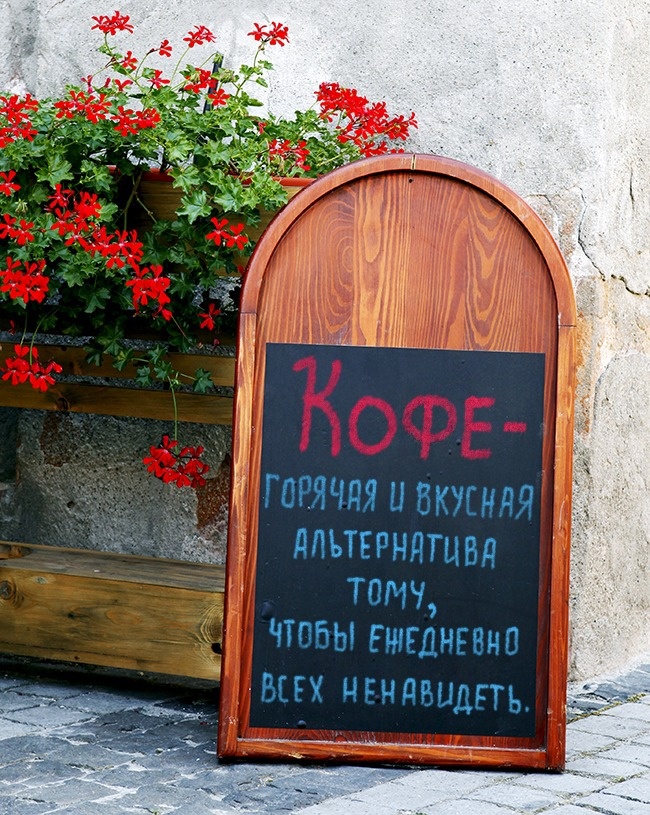 Кофе-
горячая и вкусная
альтернатива
тому,
чтобы ежедневно
всех ненавидеть.